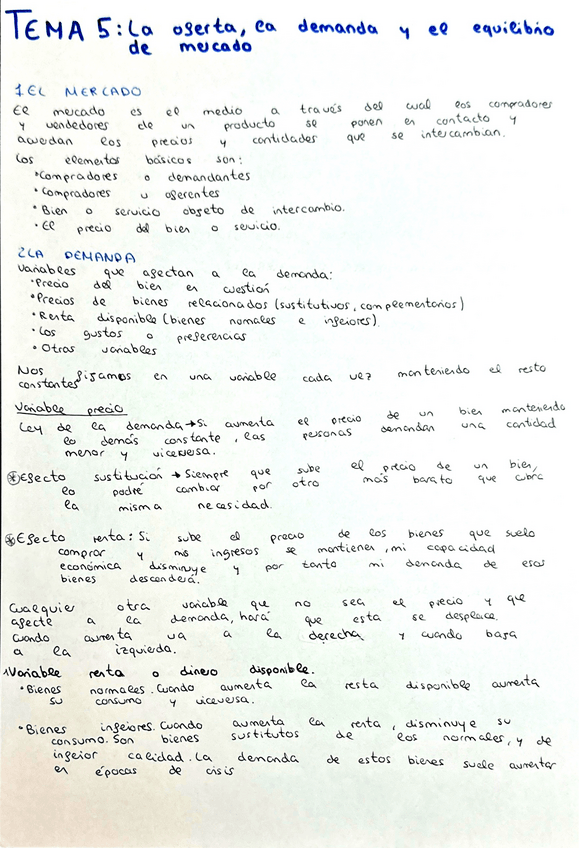 TEMA 5: La oferta, la demanda y el equilibrio
de mercado
1 EL MERCADO
El mercado es el medio a través del cual los compradores
y vendedores de un producto se ponen en contacto y
acuerdan los precios y cantidades que se intercambian.
Los elementos básicos son:
•Compradores o demandantes
•Compradores u oferentes
• Bien o servicio objeto de intercambio.
• El precio del bien o servicio.
2 LA DEMANDA
Variables que afectan a la demanda:
•Precio del bien en cuestión
•Precios de bienes relacionados (sustitutivos, complementarios)
• Renta disponible (bienes normales e inferiores)
• Los gustos o preferencias
• Otras variables
Nos fijamos en una variable cada vez manteniendo el resto
constantes
Variable precio
Ley de la demanda → Si aumenta el precio de un bien manteniendo
lo demás constante, las personas demandan una cantidad
menor y viceversa.
*Efecto sustitución → Siempre que sube el precio de un bien,
lo podré cambiar por otro más barato que cubra
la misma necesidad.
*Efecto renta: Si sube el precio de los bienes que suelo
comprar y mis ingresos se mantienen, mi capacidad
económica disminuye y por tanto mi demanda de esos
bienes descenderá.
Cualquier otra variable que no sea el precio y que
afecte a la demanda, hará que esta se desplace.
Cuando aumenta va a la derecha y cuando baja
a la izquierda.
1Variable renta o dinero disponible.
• Bienes normales. Cuando aumenta la resta disponible aumenta
su consumo y viceversa.
• Bienes inferiores. Cuando aumenta la renta, disminuye su
consumo. Son bienes sustitutos de los normales, y de
inferior calidad. La demanda de estos bienes suele aumentar
en épocas de crisis